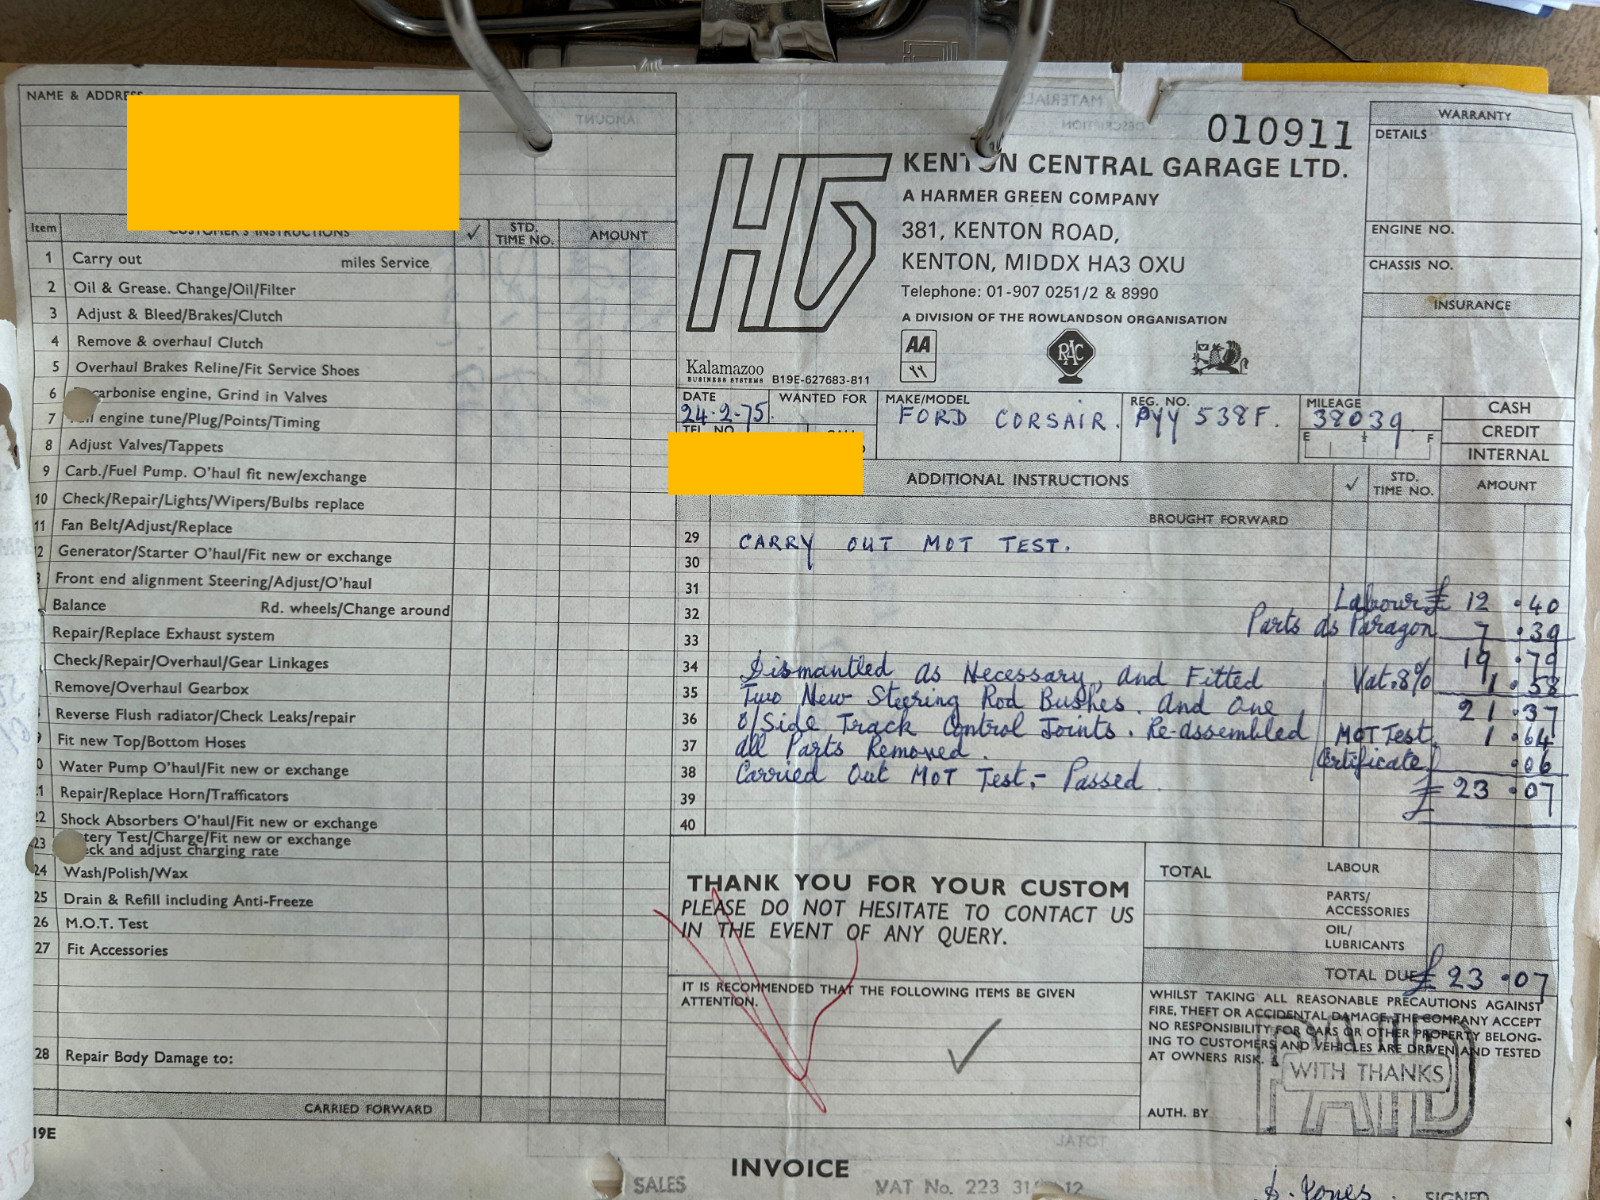 NAME & ADDRESS
Item CUSTOMER'S INSTRUCTIONS ✓ STD. TIME NO. AMOUNT
1 Carry out miles Service
2 Oil & Grease. Change/Oil/Filter
3 Adjust & Bleed/Brakes/Clutch
4 Remove & overhaul Clutch
5 Overhaul Brakes Reline/Fit Service Shoes
6 carbonise engine, Grind in Valves
7 engine tune/Plug/Points/Timing
8 Adjust Valves/Tappets
9 Carb./Fuel Pump. O'haul fit new/exchange
10 Check/Repair/Lights/Wipers/Bulbs replace
11 Fan Belt/Adjust/Replace
2 Generator/Starter O'haul/Fit new or exchange
Front end alignment Steering/Adjust/O'haul
Balance Rd. wheels/Change around
Repair/Replace Exhaust system
Check/Repair/Overhaul/Gear Linkages
Remove/Overhaul Gearbox
Reverse Flush radiator/Check Leaks/repair
9 Fit new Top/Bottom Hoses
0 Water Pump O'haul/Fit new or exchange
1 Repair/Replace Horn/Trafficators
22 Shock Absorbers O'haul/Fit new or exchange
23 tery Test/Charge/Fit new or exchange
eck and adjust charging rate
24 Wash/Polish/Wax
25 Drain & Refill including Anti-Freeze
26 M.O.T. Test
27 Fit Accessories
28 Repair Body Damage to:
CARRIED FORWARD
19E
010911
KENTON CENTRAL GARAGE LTD.
A HARMER GREEN COMPANY
381, KENTON ROAD,
KENTON, MIDDX HA3 OXU
Telephone: 01-907 0251/2 & 8990
A DIVISION OF THE ROWLANDSON ORGANISATION
HG
AA
RAC
Kalamazoo
BUSINESS SYSTEMS B19E-627683-811
WARRANTY
DETAILS
ENGINE NO.
CHASSIS NO.
INSURANCE
DATE WANTED FOR MAKE/MODEL REG. NO. MILEAGE
24·2·75. FORD CORSAIR. PYY 538F. 38039
TEL. NO.
E ½ F
CASH
CREDIT
INTERNAL
ADDITIONAL INSTRUCTIONS ✓ STD. TIME NO. AMOUNT
BROUGHT FORWARD
29 CARRY OUT MOT TEST.
30
31 Labour £ 12 ·40
32 Parts as Paragon 7 ·39
33 19 ·79
34 Dismantled as Necessary, and Fitted Vat. 8% 1 ·58
35 Two New Steering Rod Bushes. And One 21 ·37
36 O/Side Track Control Joints. Re-assembled MOT Test 1 ·64
37 all Parts Removed. Certificate ·06
38 Carried Out MOT Test.- Passed £ 23 ·07
39
40
THANK YOU FOR YOUR CUSTOM
PLEASE DO NOT HESITATE TO CONTACT US
IN THE EVENT OF ANY QUERY.
IT IS RECOMMENDED THAT THE FOLLOWING ITEMS BE GIVEN
ATTENTION.
TOTAL LABOUR
PARTS/
ACCESSORIES
OIL/
LUBRICANTS
TOTAL DUE £ 23 ·07
WHILST TAKING ALL REASONABLE PRECAUTIONS AGAINST
FIRE, THEFT OR ACCIDENTAL DAMAGE, THE COMPANY ACCEPT
NO RESPONSIBILITY FOR CARS OR OTHER PROPERTY BELONG-
ING TO CUSTOMERS AND VEHICLES ARE DRIVEN AND TESTED
AT OWNERS RISK.
PAID
WITH THANKS
AUTH. BY
INVOICE
SALES VAT No. 223 31 12
Jones. SIGNED